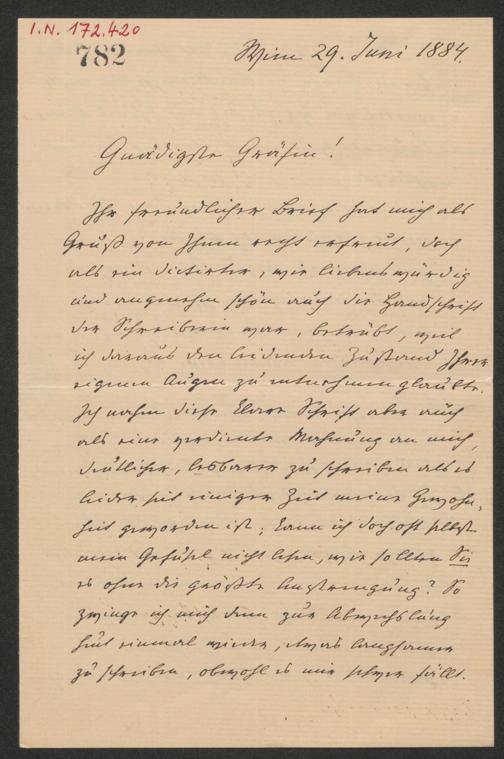 I.N. 172.420
782
Wien 29. Juni 1884.
Gnädigste Gräfin!
Ihr freundlicher Brief hat mich als
Gruß von Ihnen recht erfreut, doch
als ein dictirter, wie liebenswürdig
und angenehm schön auch die Handschrift
der Schreiberin war, betrübt, weil
ich daraus den leidenden Zustand Ihrer
eigenen Augen zu entnehmen glaubte.
Ich nahm diese klare Schrift aber auch
als eine verdiente Mahnung an mich,
deutlicher, lesbarer zu schreiben als es
leider seit einiger Zeit meine Gewohn-
heit geworden ist; kann ich doch oft selbst
mein Gefühl nicht lesen, wie sollten Sie
es ohne die größte Anstrengung? So
zwinge ich mich denn zur Abwechslung
heut einmal wieder, etwas langsamer
zu schreiben, obwohl es mir schwer fällt.